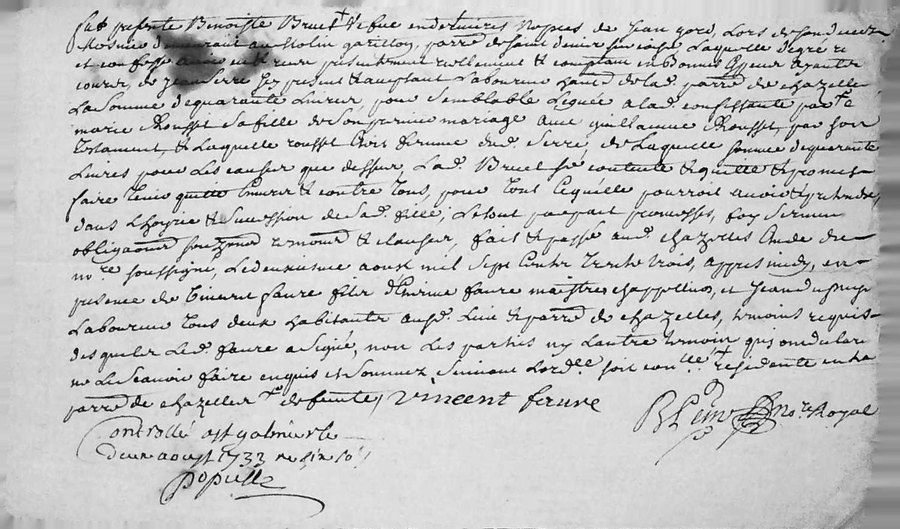 fut presente Benoiste Bruet + Vefue en dernieres Nopces de Jean gord, Lors de son deces
Mosnie demeurant au Molin garillon, parre de Saint denis sur coise Laquelle de gre
et confesse avoir eu et receu presentement reellement & comptant en bonnes especes ayants
cours, de Jean Serre icy present & acceptant Laboureur habt. de lad. parre de chazelles
La Somme de quarante Livres, pour Semblable Leguée a lad. confessante par
marie Rousset sa fille de son premier mariage avec guillaume Rousset, par son
testament, & Laquelle rousset dud. Serre, de Laquelle Somme de quarante
Livres pour Les causes que dessus, Lad. Bruet se contente & quitte & promet
faire tenir quitte Envers & contre Tous, pour Tout Cequ'elle pourroit avoir & pretendre
dans L'hoyrie & Succession de Sad. fille, Letout par part promesses, foy serment
obligaons soumons renons & clauses, fait & passé aud. chazelles Etude de
nore soussigné, Le deuxieme aoust mil Sept Cents Trente trois, appres midy, en
presence de Vincent faure fils d'Etienne faure maistre chappellier, et Jean
Laboureur Tous deux habitants aud. Lieu & parre de chazelles, temoins requis
desquels Led. faure a Signé, non Les parties ny Lautre temoin qui ont declaré
ne Le Scavoir faire enquis et Sommez Suivant Lordce Soit conlle + residente en la
parre de chazelles defunte / Vincent faure
nore Royal
Controllé a St galmier le
deux aoust 1733 re six sols
popille